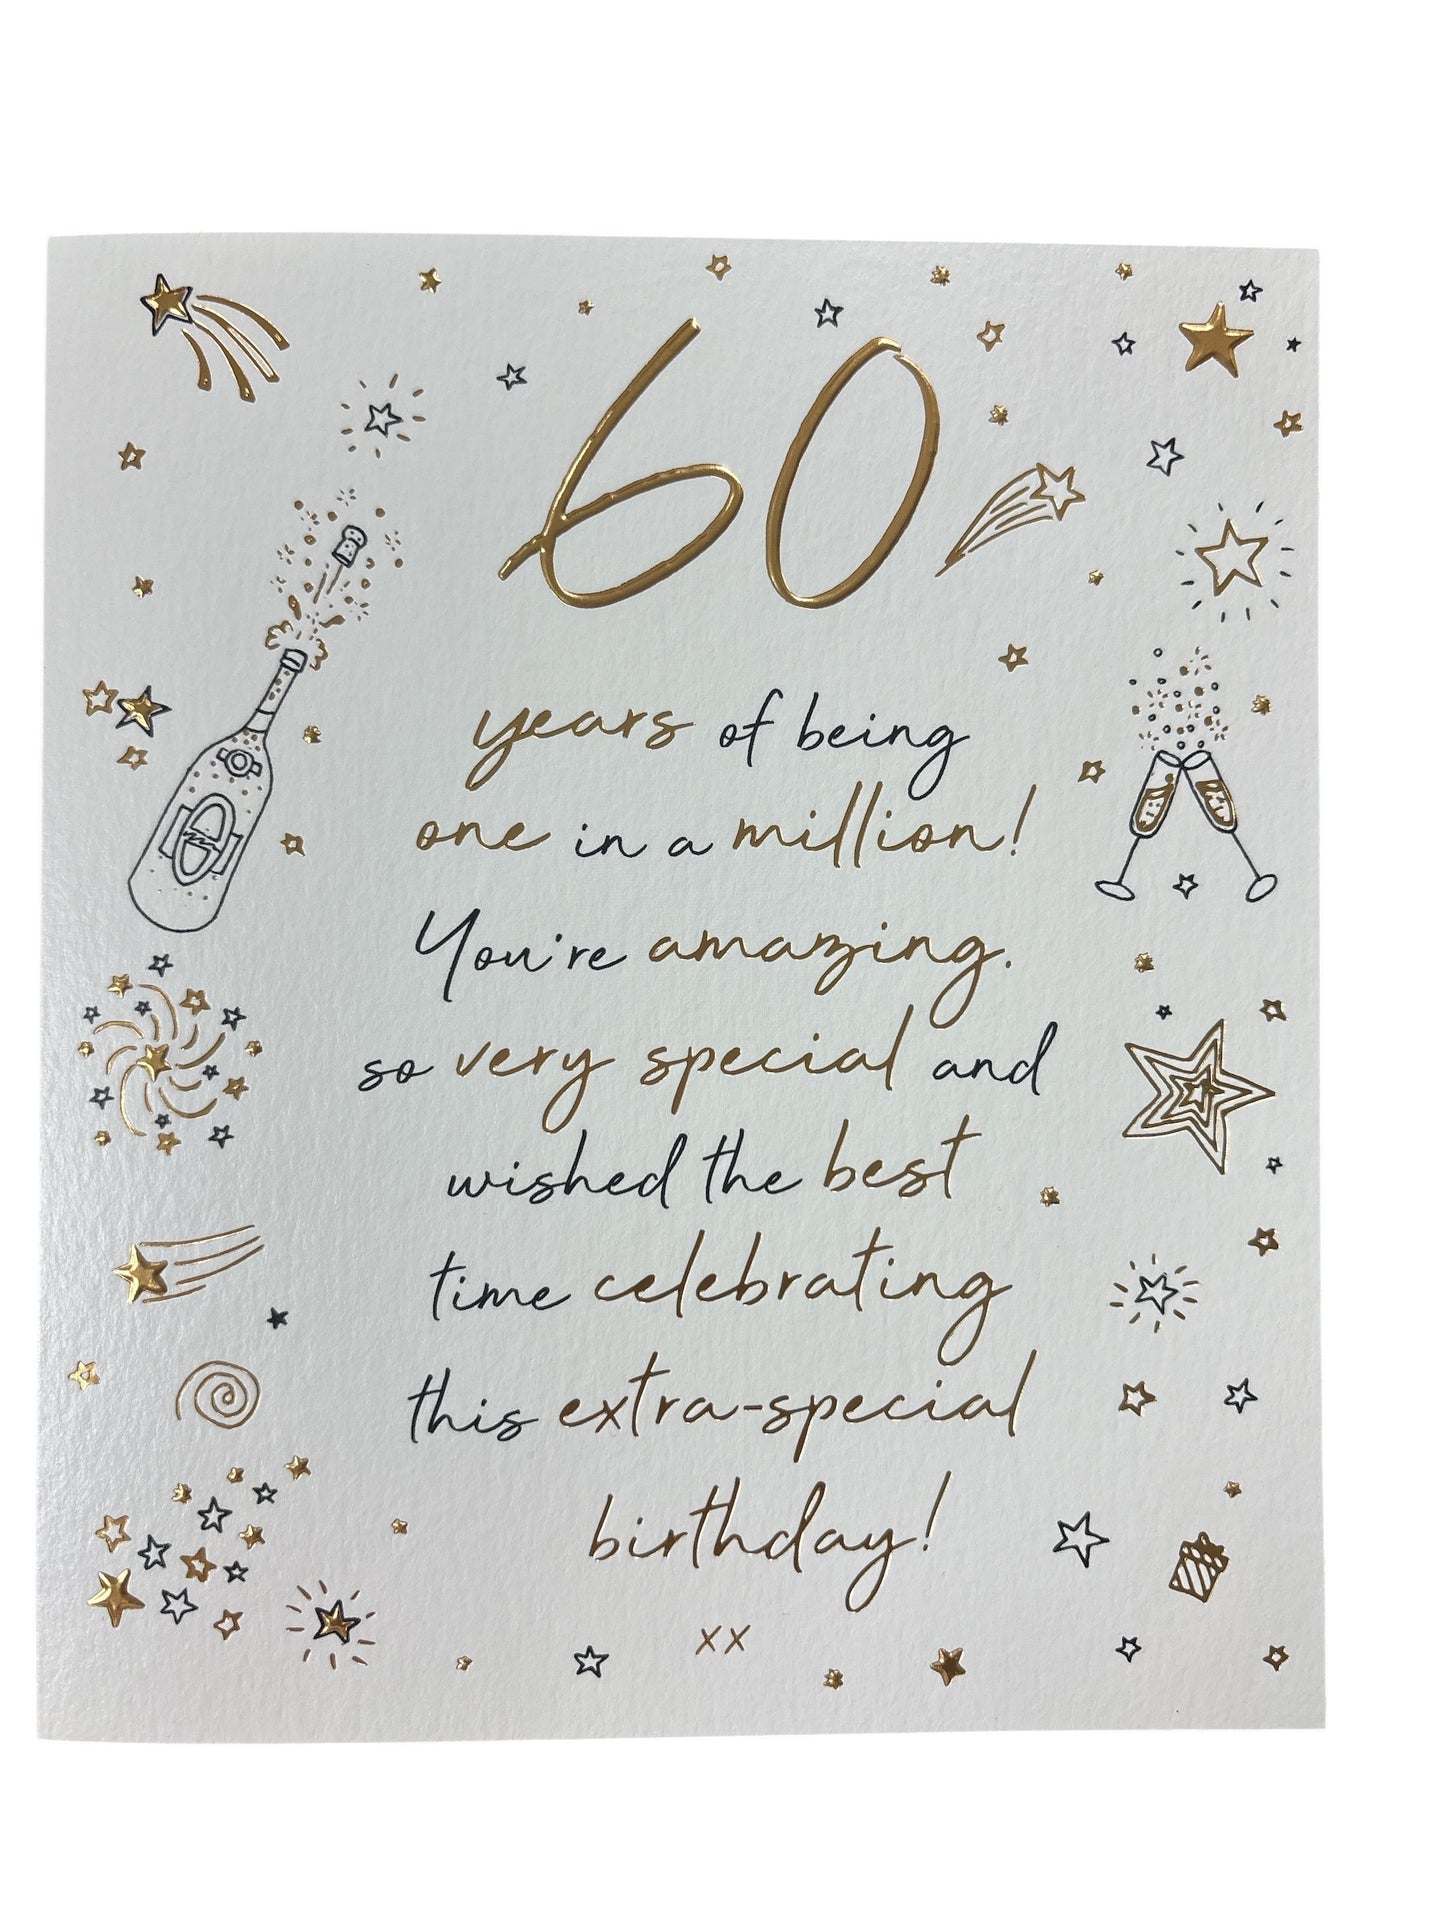 60
years of being
one in a million!
You're amazing.
so very special and
wished the best
time celebrating
this extra-special
birthday!
xx